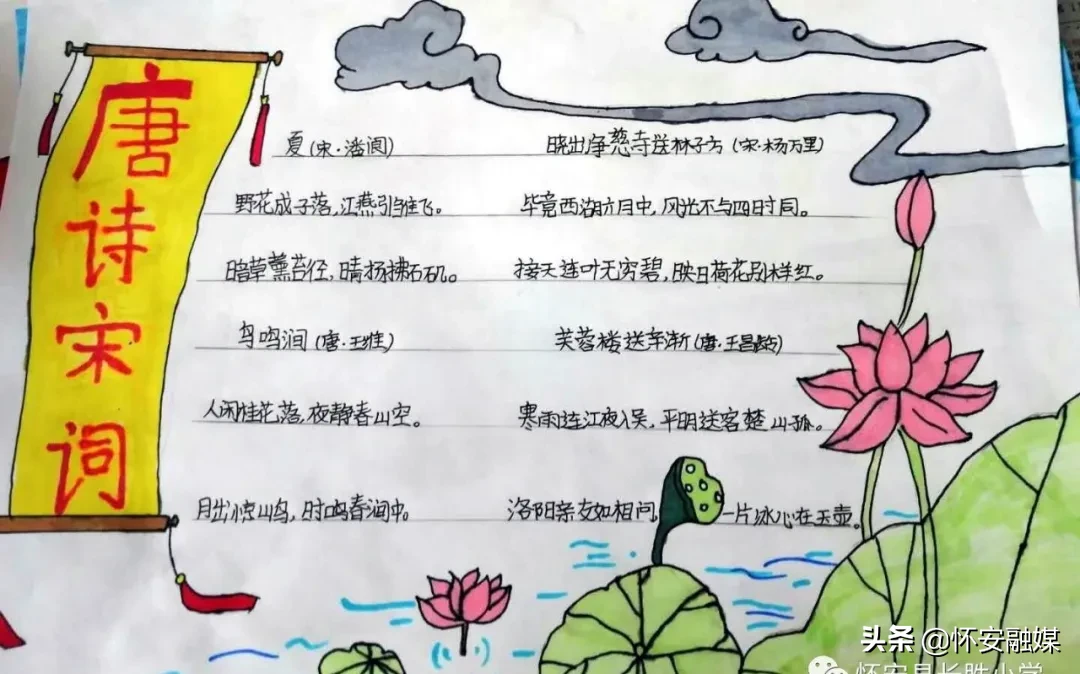 唐诗宋词
夏(宋·潘阆)
野花成子落,江燕引雏飞。
暗草薰苔径,晴扬拂石矶。
鸟鸣涧(唐·王维)
人闲桂花落,夜静春山空。
月出惊山鸟,时鸣春涧中。
晓出净慈寺送林子方(宋·杨万里)
毕竟西湖六月中,风光不与四时同。
接天莲叶无穷碧,映日荷花别样红。
芙蓉楼送辛渐(唐·王昌龄)
寒雨连江夜入吴,平明送客楚山孤。
洛阳亲友如相问,一片冰心在玉壶。
头条 @怀安融媒
怀安县长胜小学